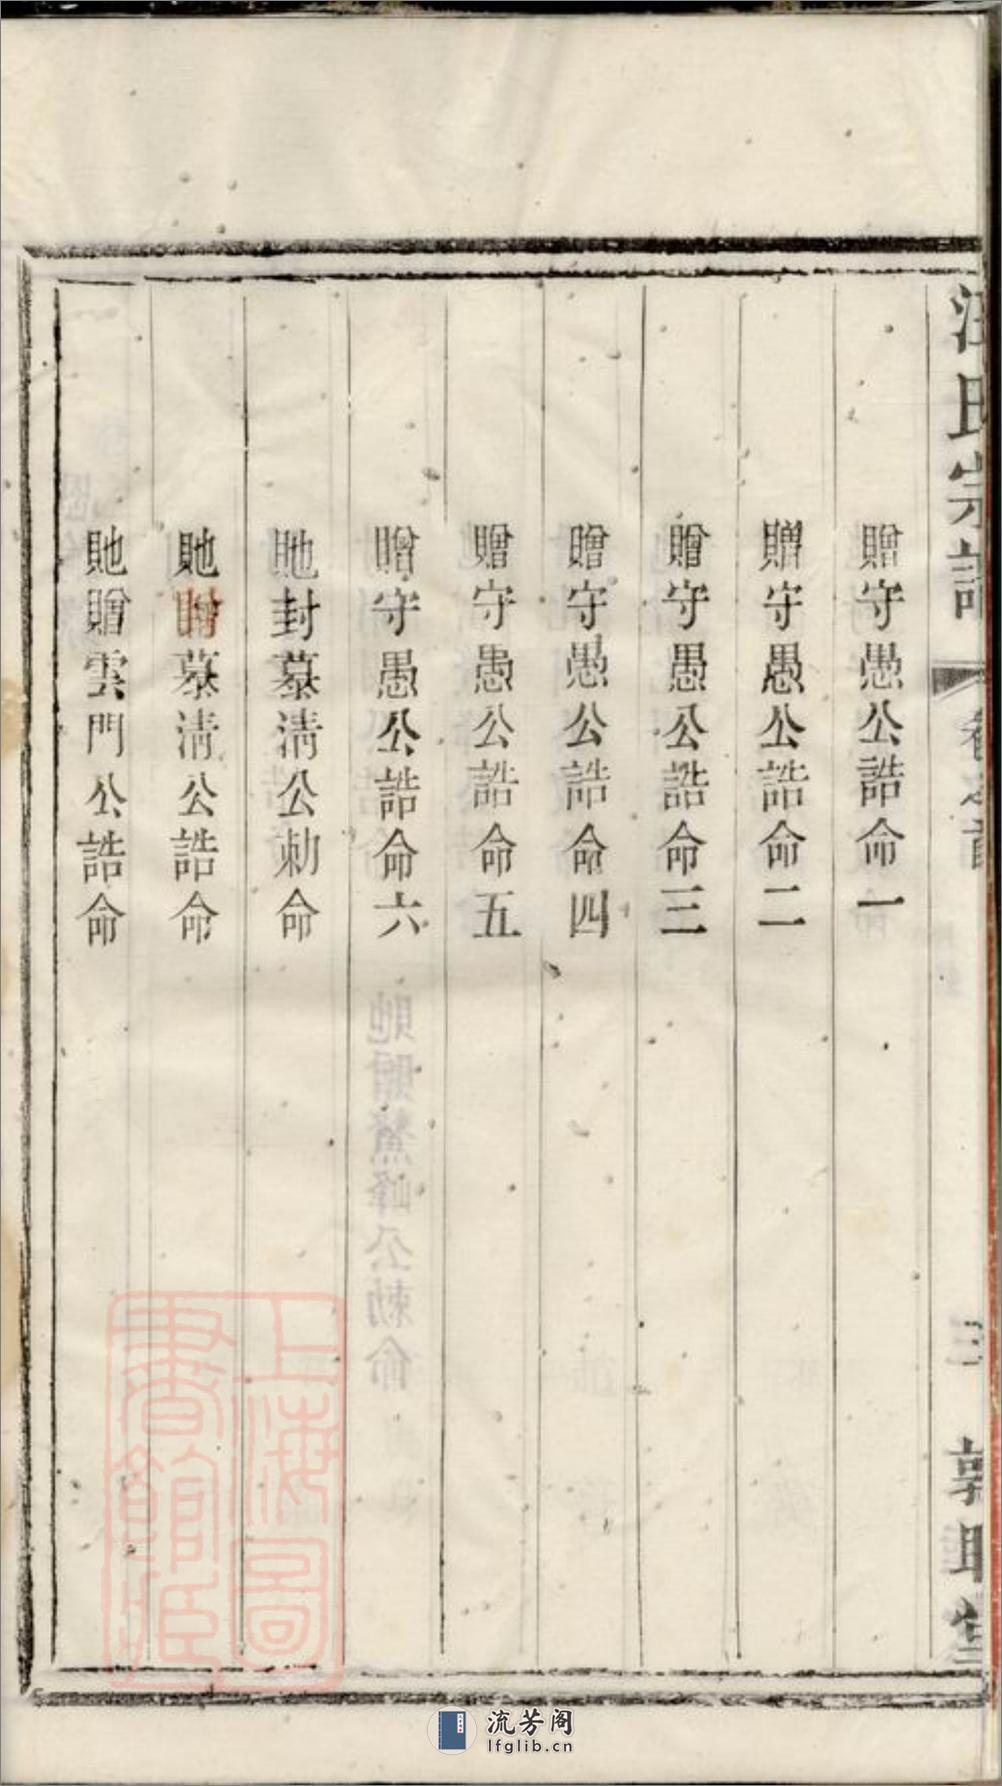 汪氏宗譜
卷之首
三
敦睦堂
贈守愚公誥命一
贈守愚公誥命二
贈守愚公誥命三
贈守愚公誥命四
贈守愚公誥命五
贈守愚公誥命六
貤封慕清公勅命
貤贈慕清公誥命
貤贈雲門公誥命
上海圖書館藏
流芳阁
lfglib.cn